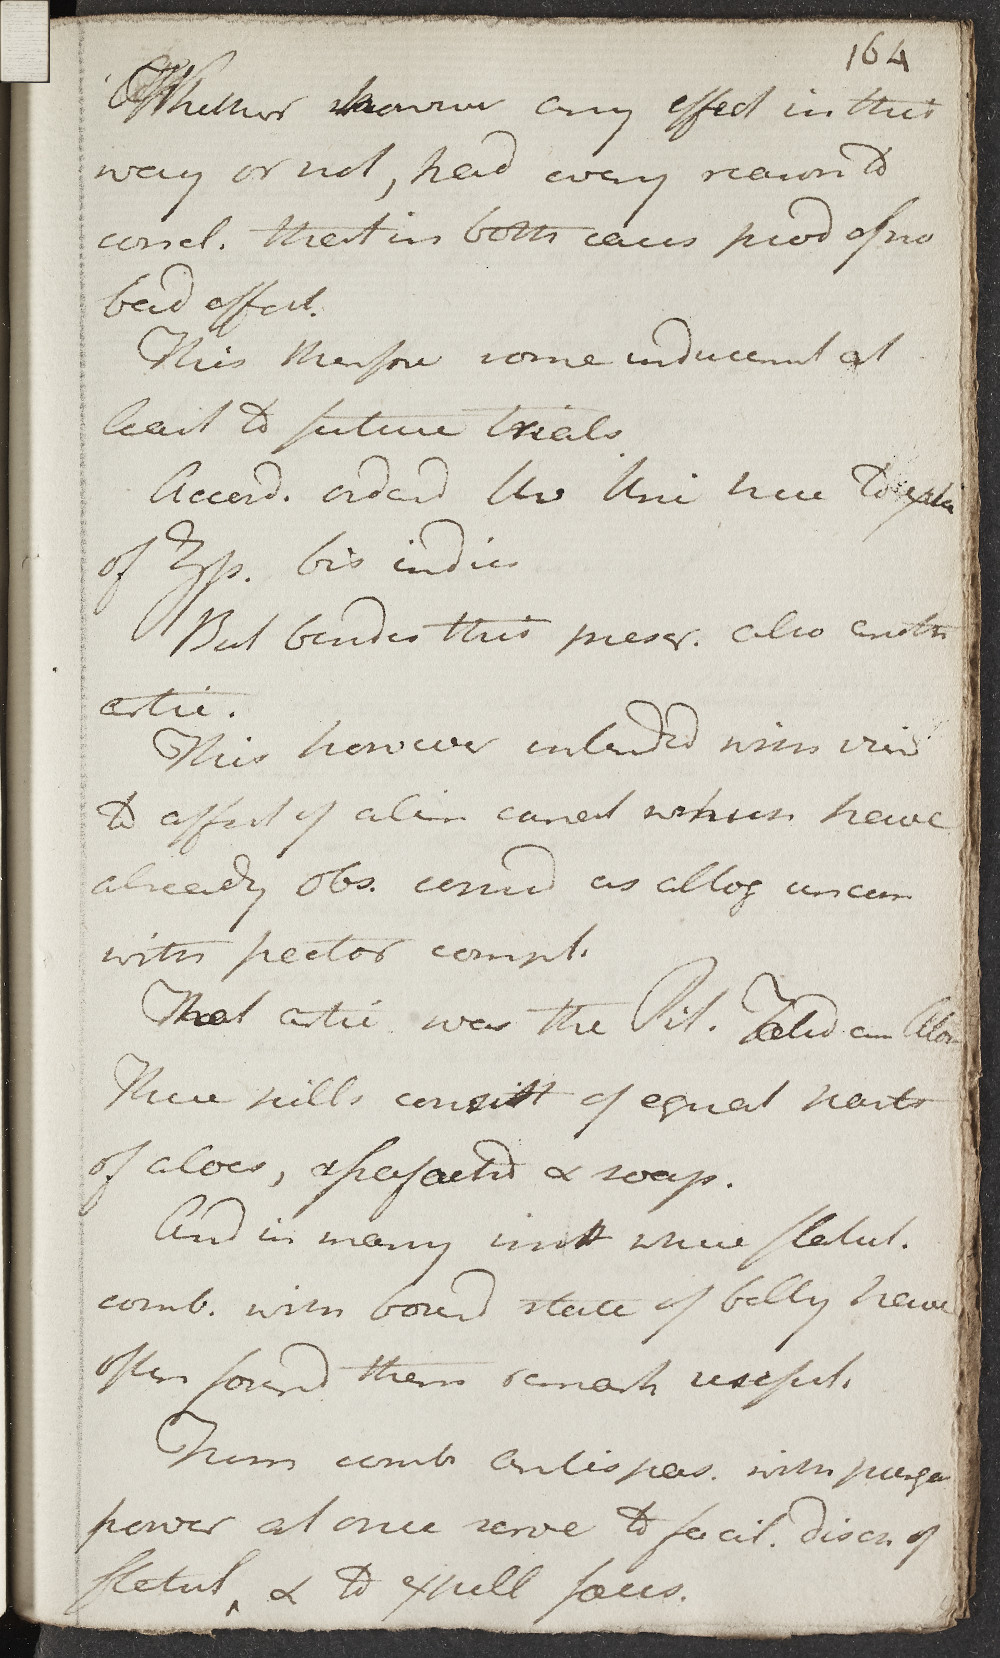 164
Whether however any effect in that
way or not, had every reason to
concl. that in both cases prod of no
bad effect.
This therefore some inducemt at
least to future trials
Accord. orderd the
of ℥ſs. bis indies
But besides this prescr. also anoth
artic.
This however intended with view
to effect of alim canal which have
already obs. consid as altog uncon
with pector compl.
That artic was the Pil. Fetid cum Aloe
These pills consist of equal parts
of aloes, asafoetid & soap.
And in many inst where flatul.
comb. with bound state of belly have
often found them remark useful.
From comb antispas. with purga
power at once serve to facil. disch of
flatul, & to expell faeces.